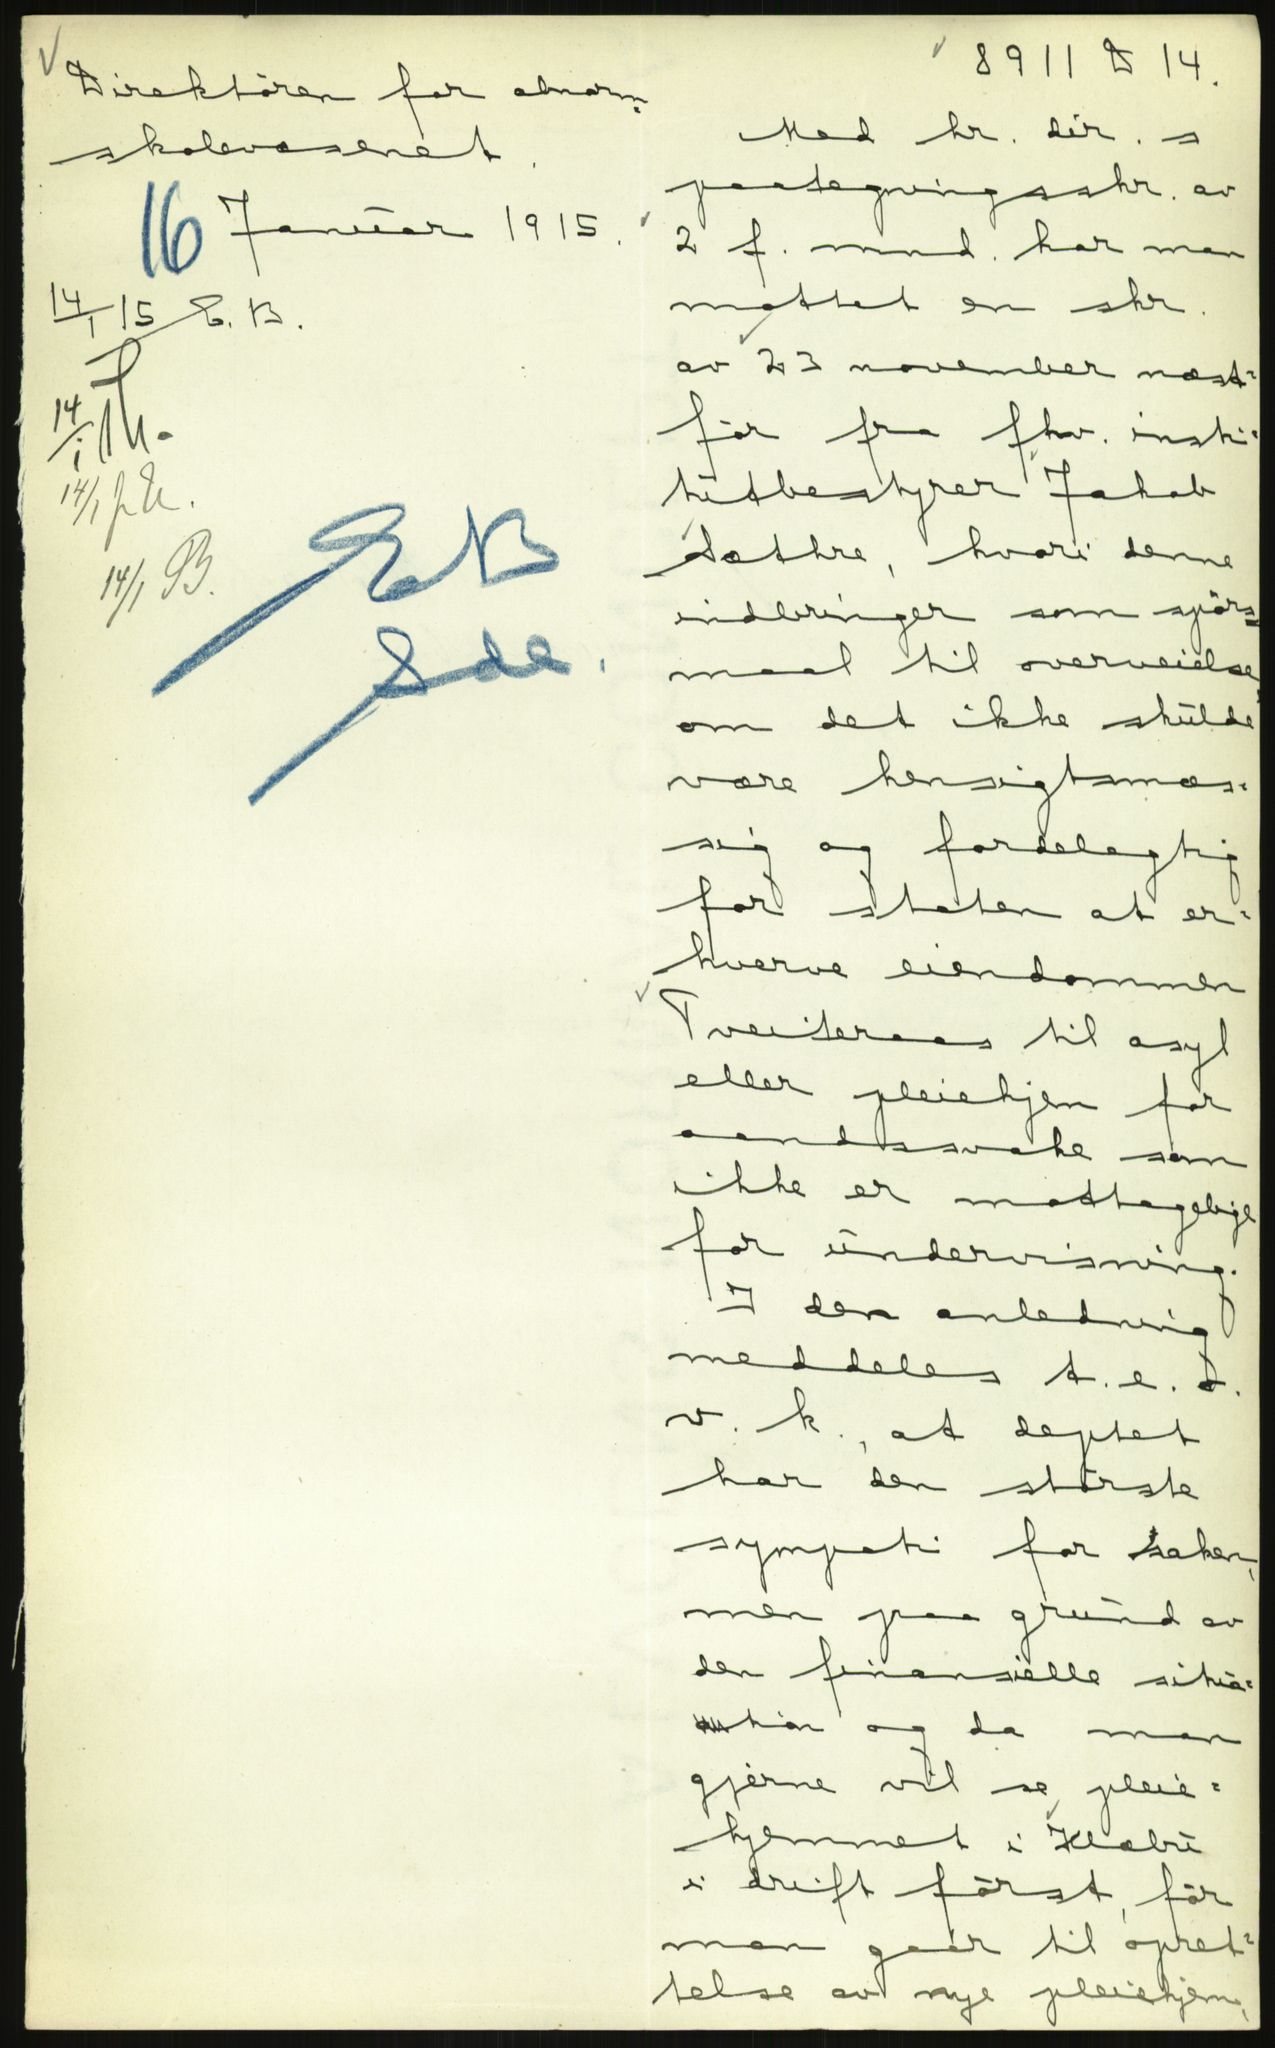 Direktören for abnorm-
skolevæsenet.
16 Januar 1915.
14/1 15 E.B.
14/1
14/1
14/1 B.
E B
Ede.
8911 D 14.
Med hr. dir. s
paategningsskr. av
2 f. mnd. har man
mottat en skr.
av 23 november næst-
för fra fhv. insti-
tutbestyrer Jakob
Sæthre, hvori denne
indbringer som spörs-
maal til overveielse
om det ikke skulde
være hensigtsmæs-
sig og fordelagtig
for staten at er-
hverve eiendommen
Tveiteraas til asyl
eller pleiehjem for
aandssvake som
ikke er mottagelige
for undervisning.
I den anledning
meddeles t. e. o.
v. k., at deptet
har den störste
sympati for saken,
men paa grund av
den finansielle situa-
tion og da man
gjerne vil se pleie-
hjemmet i Klæbu
i drift först, för
man gaar til opret-
telse av nye pleiehjem,